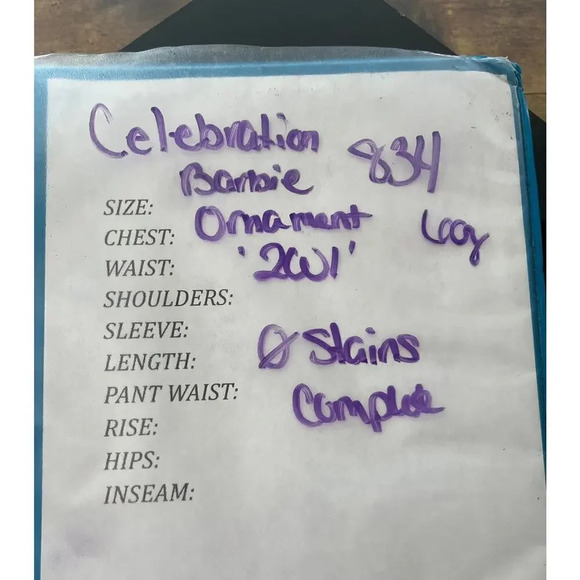 Celebration 834
Barbie
SIZE:
CHEST: Ornament
WAIST: '2001'
SHOULDERS:
SLEEVE:
LENGTH: Ø Stains
PANT WAIST: Complete
RISE:
HIPS:
INSEAM: